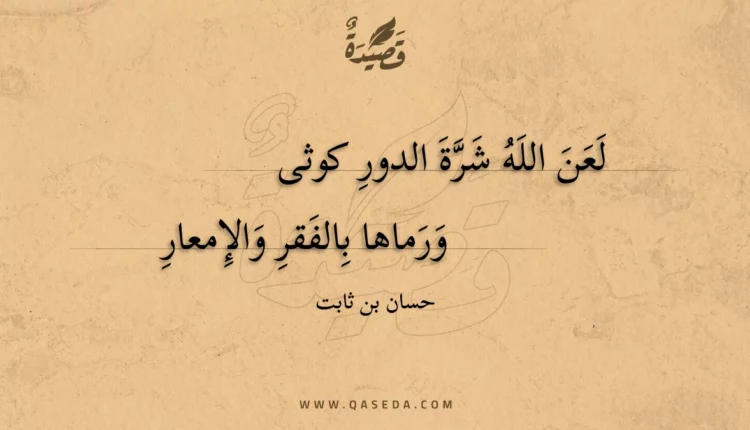 قَصِيْدَةٌ
لَعَنَ اللَهُ شَرَّةَ الدورِ كوثى
وَرَماها بِالفَقرِ وَالإِمعارِ
حسان بن ثابت
WWW.QASEDA.COM